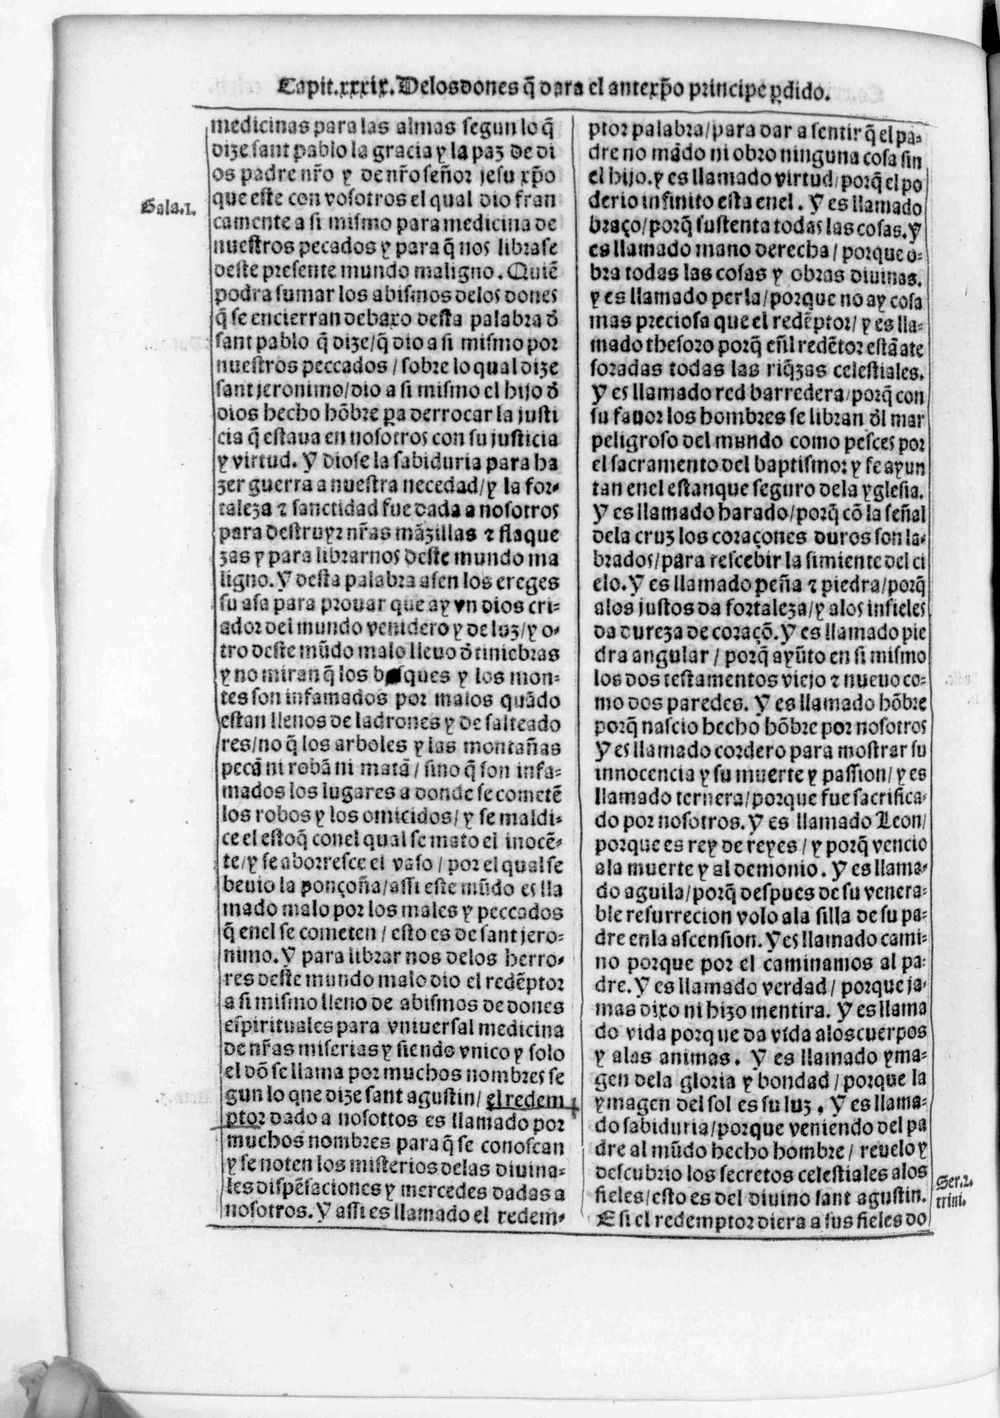 Capit.xxxix. Delos dones q̃ dara el antexp̃o principe ꝑdido.
medicinas para las almas segun lo q̃
dize sant pablo la gracia y la paz de di
os padre nr̃o y de nr̃o señor jesu xp̃o
Gala.1.
que este con vosotros el qual dio fran
camente a si mismo para medicina de
nuestros pecados y para q̃ nos librase
deste presente mundo maligno. Quiẽ
podra sumar los abismos delos dones
q̃ se encierran debaxo desta palabra d̃
sant pablo q̃ dize/q̃ dio a si mismo por
nuestros peccados/sobre lo qual dize
sant jeronimo/dio a si mismo el hijo d̃
dios hecho hõbre ꝑa derrocar la justi
cia q̃ estaua en nosotros con su justicia
y virtud. Y diose la sabiduria para ha
zer guerra a nuestra necedad/y la for-
taleza ⁊ sanctidad fue dada a nosotros
para destruyr nr̃as mãzillas ⁊ flaque
zas y para librarnos deste mundo ma
ligno. Y desta palabra asen los ereges
su asa para prouar que ay vn dios cri-
ador del mundo venidero y de luz/y o-
tro deste mũdo malo lleuo d̃ tiniebras
y no miran q̃ los bosques y los mon-
tes son infamados por malos quãdo
estan llenos de ladrones y de salteado
res/no q̃ los arboles y las montañas
pecã ni robã ni matã/sino q̃ son infa-
mados los lugares a donde se cometẽ
los robos y los omicidos/y se maldi-
ce el estoq̃ conel qual se mato el inocẽ-
te/y se aborresce el vaso/por el qual se
beuio la ponçoña/assi este mũdo es lla
mado malo por los males y peccados
q̃ enel se cometen/esto es de sant jero-
nimo. Y para librar nos delos herro-
res deste mundo malo dio el redẽptor
a si mismo lleno de abismos de dones
espirituales para vniuersal medicina
de nr̃as miserias y siendo vnico y solo
el dõ se llama por muchos nombres se
gun lo que dize sant agustin/el redem
ptor dado a nosottos es llamado por
muchos nombres para q̃ se conoscan
y se noten los misterios delas diuina-
les dispẽsaciones y mercedes dadas a
nosotros. Y assi es llamado el redem-
ptor palabra/para dar a sentir q̃ el pa-
dre no mãdo ni obro ninguna cosa sin
el hijo. y es llamado virtud/porq̃ el po
derio infinito esta enel. Y es llamado
braço/porq̃ sustenta todas las cosas. Y
es llamado mano derecha/porque o-
bra todas las cosas y obras diuinas.
y es llamado perla/porque no ay cosa
mas preciosa que el redẽptor/y es lla-
mado thesoro porq̃ eñl redẽtor estã ate
soradas todas las riq̃zas celestiales.
Y es llamado red barredera/porq̃ con
su fauor los hombres se libran d̃l mar
peligroso del mundo como pesces por
el sacramento del baptismo: y se ayun
tan enel estanque seguro dela yglesia.
Y es llamado harado/porq̃ cõ la señal
dela cruz los coraçones duros son la-
brados/para rescebir la simiente del ci
elo. Y es llamado peña ⁊ piedra/porq̃
alos justos da fortaleza/y alos infieles
da dureza de coraçõ. Y es llamado pie
dra angular/porq̃ ayũto en si mismo
los dos testamentos viejo ⁊ nueuo co-
mo dos paredes. Y es llamado hõbre
porq̃ nascio hecho hõbre por nosotros
Y es llamado cordero para mostrar su
innocencia y su muerte y passion/y es
llamado ternera/porque fue sacrifica-
do por nosotros. Y es llamado Leon/
porque es rey de reyes/y porq̃ vencio
ala muerte y al demonio. Y es llama-
do aguila/porq̃ despues de su venera-
ble resurrecion volo ala silla de su pa-
dre enla ascension. Y es llamado cami-
no porque por el caminamos al pa-
dre. Y es llamado verdad/porque ja-
mas dixo ni hizo mentira. Y es llama
do vida porque da vida alos cuerpos
y alas animas. Y es llamado yma-
gen dela gloria y bondad/porque la
ymagen del sol es su luz. Y es llama-
do sabiduria/porque veniendo del pa
dre al mũdo hecho hombre/reuelo y
descubrio los secretos celestiales alos
fieles/esto es del diuino sant agustin.
Ser.2.
trini.
E si el redemptor diera a sus fieles do